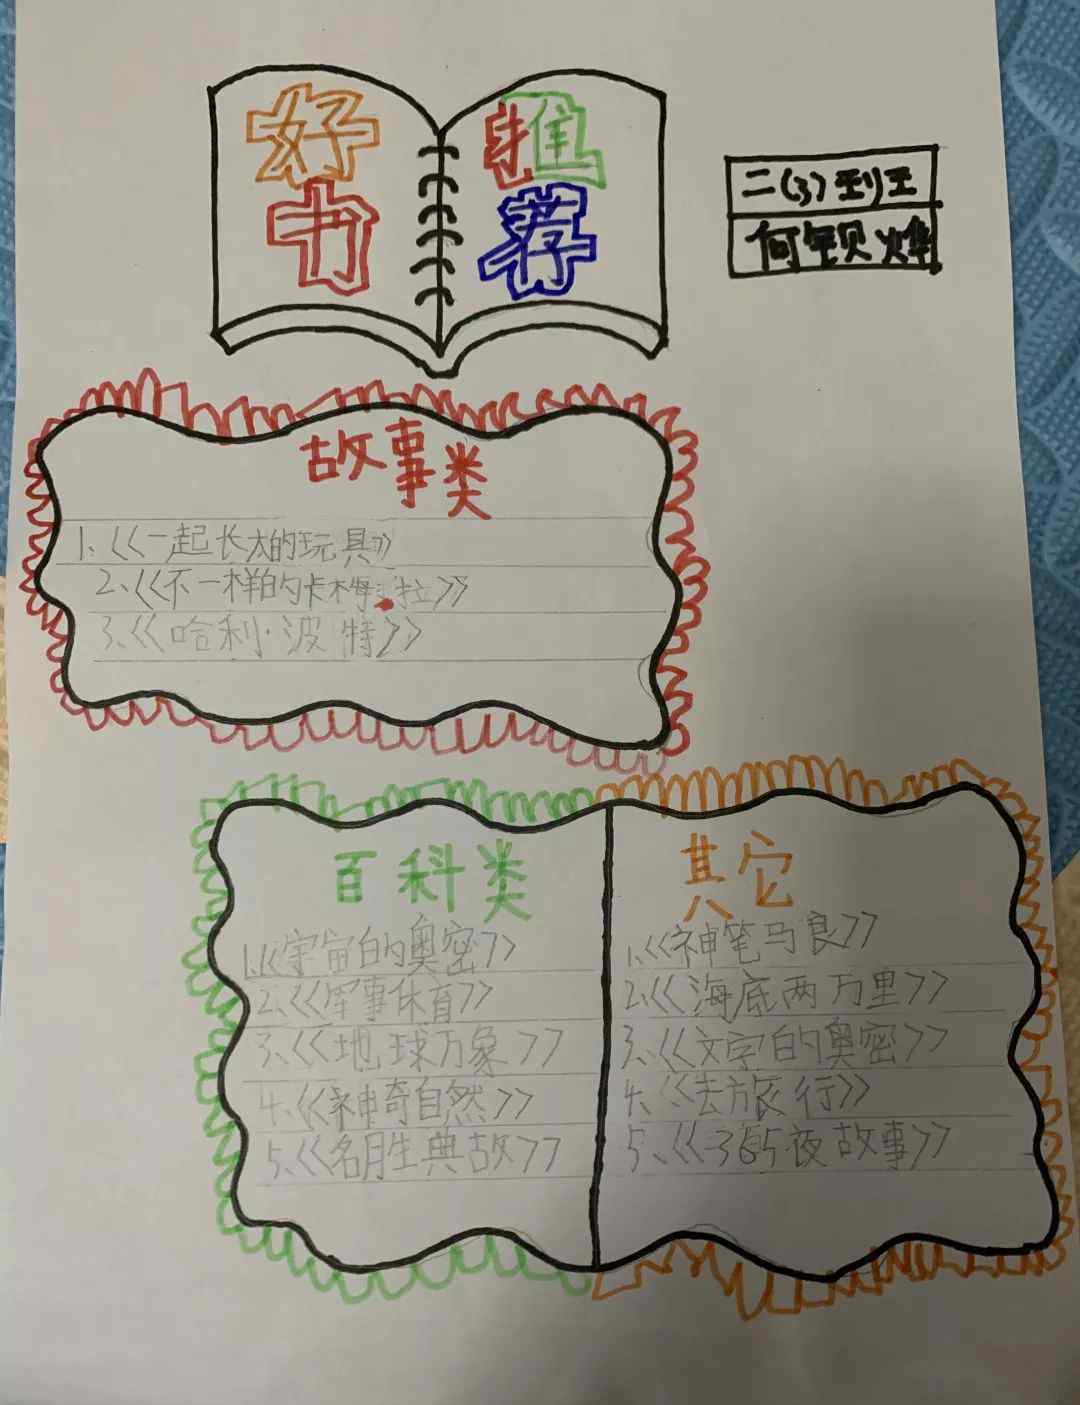 好书
推荐
二(3)到王
何钡烨
故事类
1、《一起长大的玩具》
2、《不一样的卡梅拉》
3、《哈利·波特》
百科类
1.《宇宙的奥密》
2、《军事体育》
3、《地球万象》
4、《神奇自然》
5、《名胜典故》
其它
1、《神笔马良》
2、《海底两万里》
3、《文字的奥密》
4、《去旅行》
5、《365夜故事》